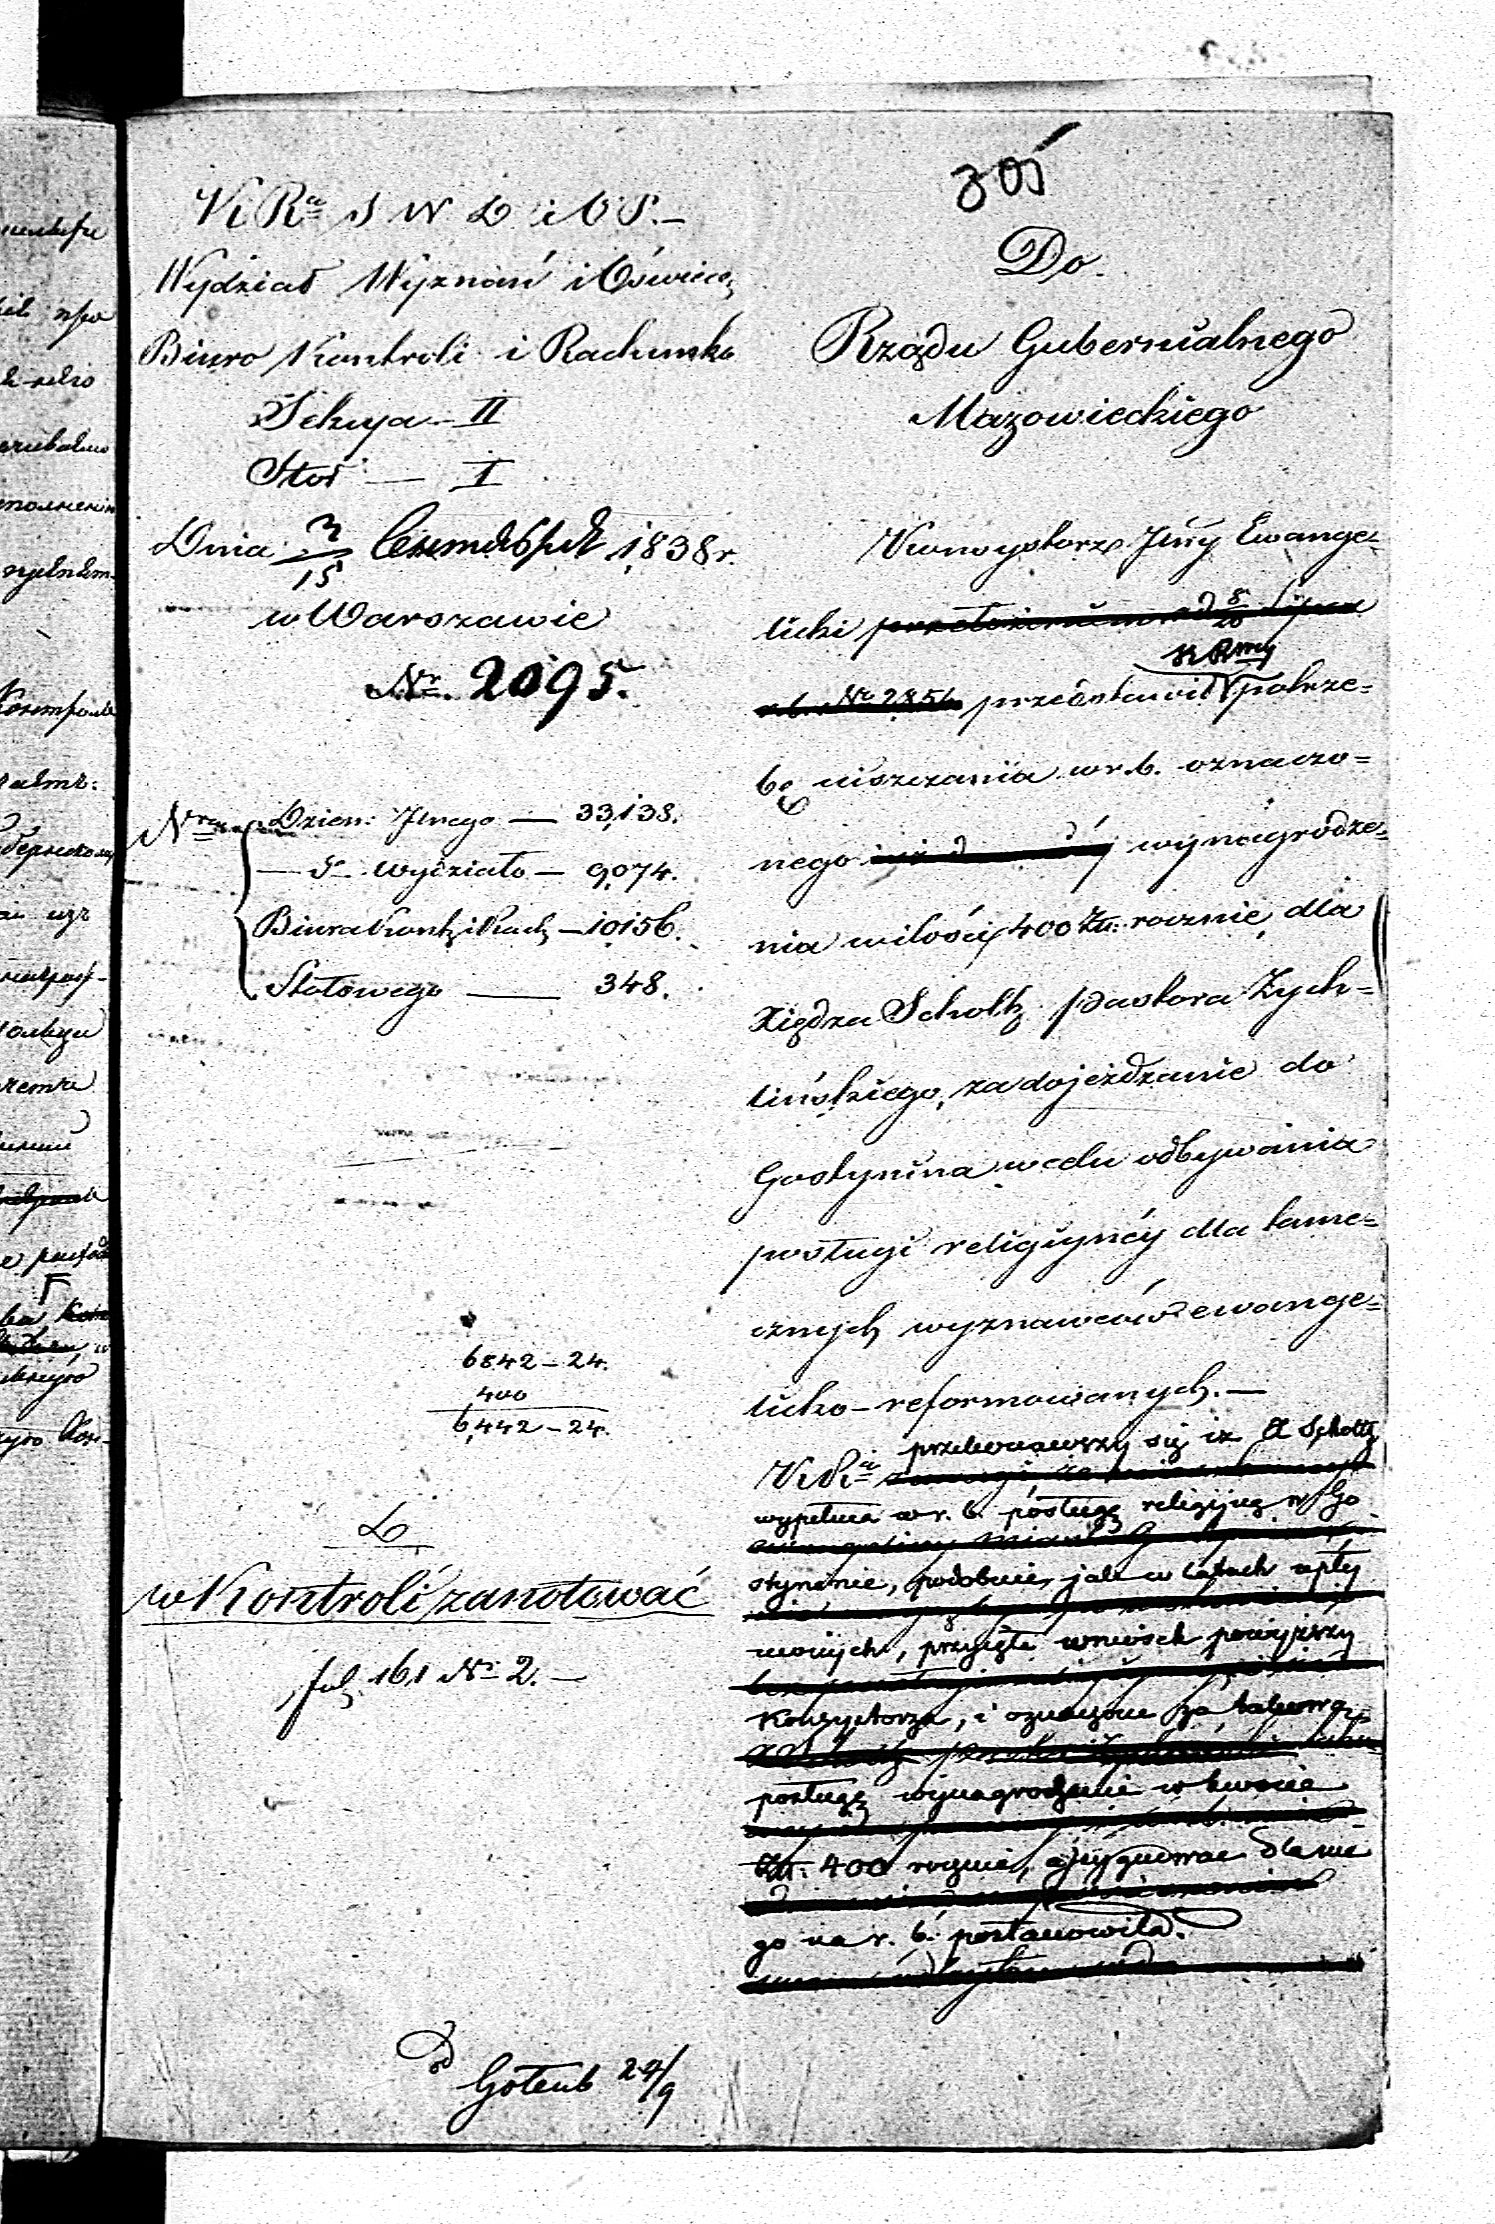 K R S W D i O P.
Wydział Wyznań i Oświec.
Biuro Kontroli i Rachunko
Sekcya II
Stoł — I
Dnia 3/15 1838 r.
w Warszawie
Nr. 2095.
Nra Dzien: Jlnego — 33,138.
— dº Wydziało — 9,074.
Biura Kont. i Rach. — 10156.
Stołowego — 348.
6842 — 24.
400
6,442 — 24.
w Kontroli zanotować
fol. 161 Nº 2. —
Gołemb 24/9
Do
Rządu Gubernialnego
Mazowieckiego
Konsystorz Jlny Ewange=
licki
r. b. Nº 2856 przedstawił potrze=
bę uiszczania w r. b. oznaczo=
nego wynagrodze=
nia w ilości 400 Złt. rocznie, dla
Xiędza Scholtz pastora Zych=
lińskiego, za dojeżdzanie do
Gostynina w celu odbywania
posługi religijnéy dla tame=
cznych wyznawców ewange=
licko-reformowanych. —
przekonawszy się iż X Scholtz
K R
wypełnia w r. b. posługę religijną w Go
styninie, podobnie jak w latach upły
nionych, przyjęła wniosek powyższy
Konsystorza, i oznaczone za takową
posługę wynagrodzenie w kwocie
Złt. 400 rocznie, assygnować dla nie
go na r. b. postanowiła.